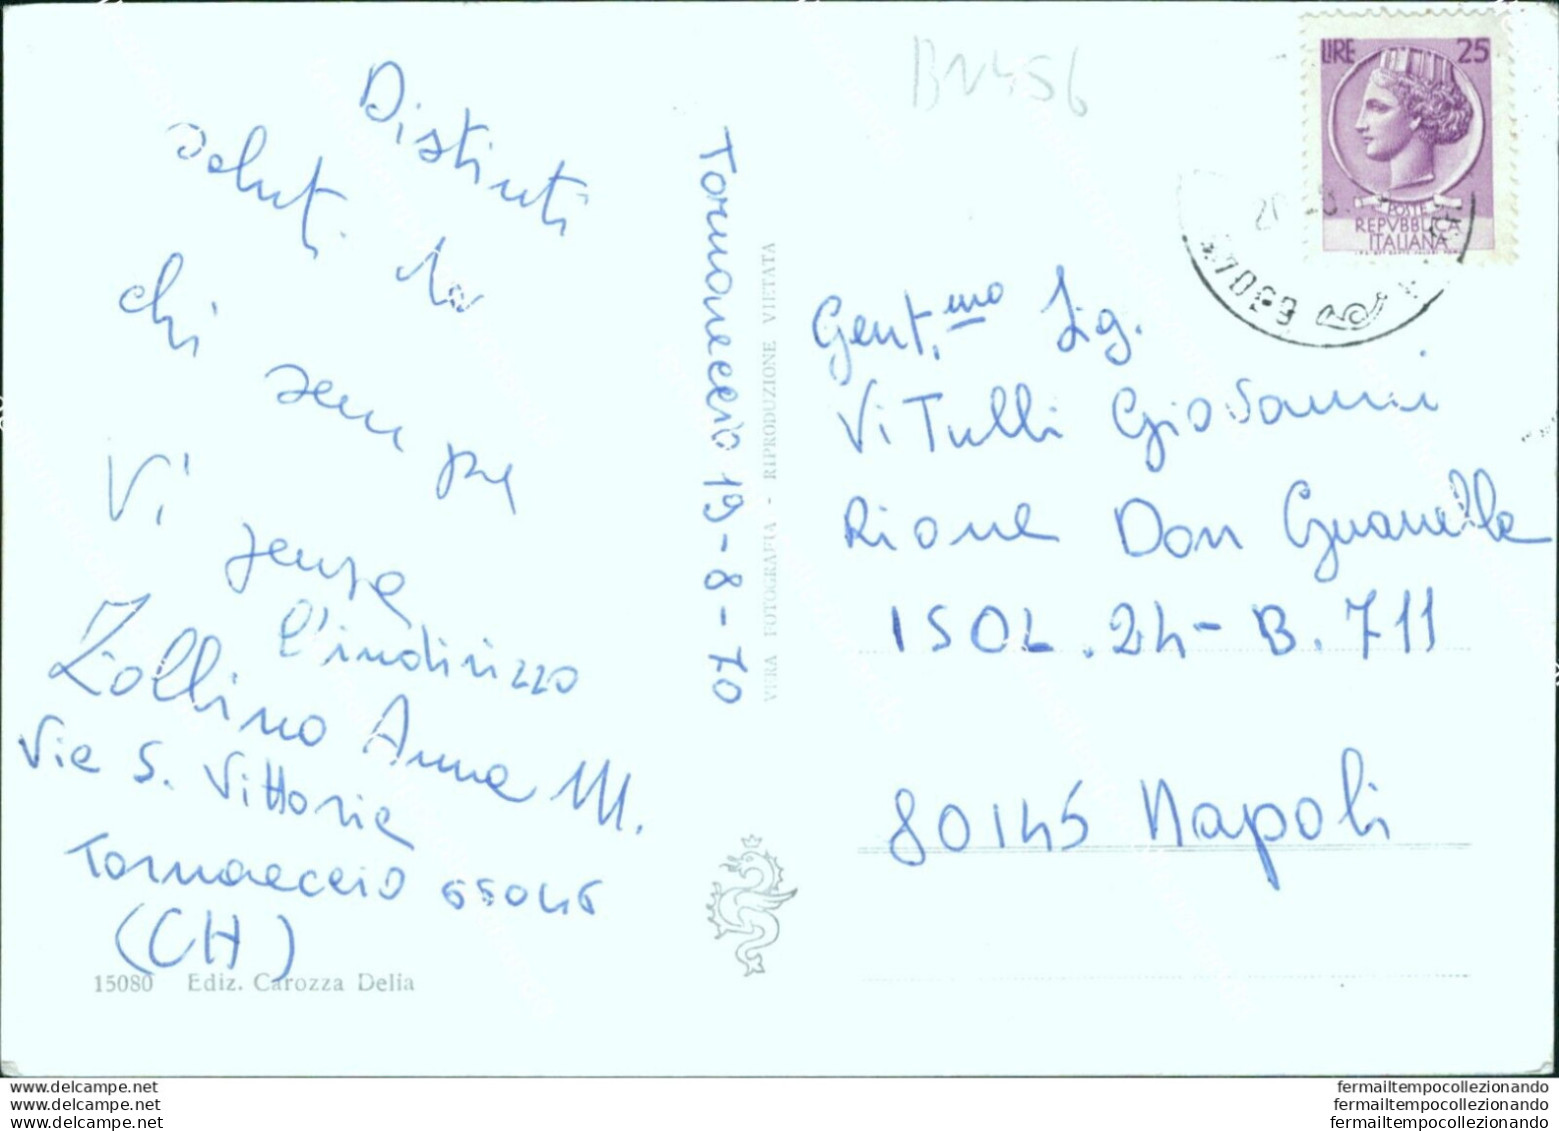 Distinti
saluti da
chi sempre
Vi pensa
l'indirizzo
Zollino Anna M.
Via S. Vittoria
Tornareccio 66046
(CH)
15080 Ediz. Carozza Delia
Tornareccio 19-8-70
VERA FOTOGRAFIA - RIPRODUZIONE VIETATA
BN456
LIRE 25
POSTE
REPVBBLICA
ITALIANA
Gent.mo Sig.
Vitulli Giovanni
Rione Don Guanella
ISOL. 24- B. 711
80145 Napoli
www.delcampe.net
www.delcampe.net
www.delcampe.net
fermailtempocollezionando
fermailtempocollezionando
fermailtempocollezionando